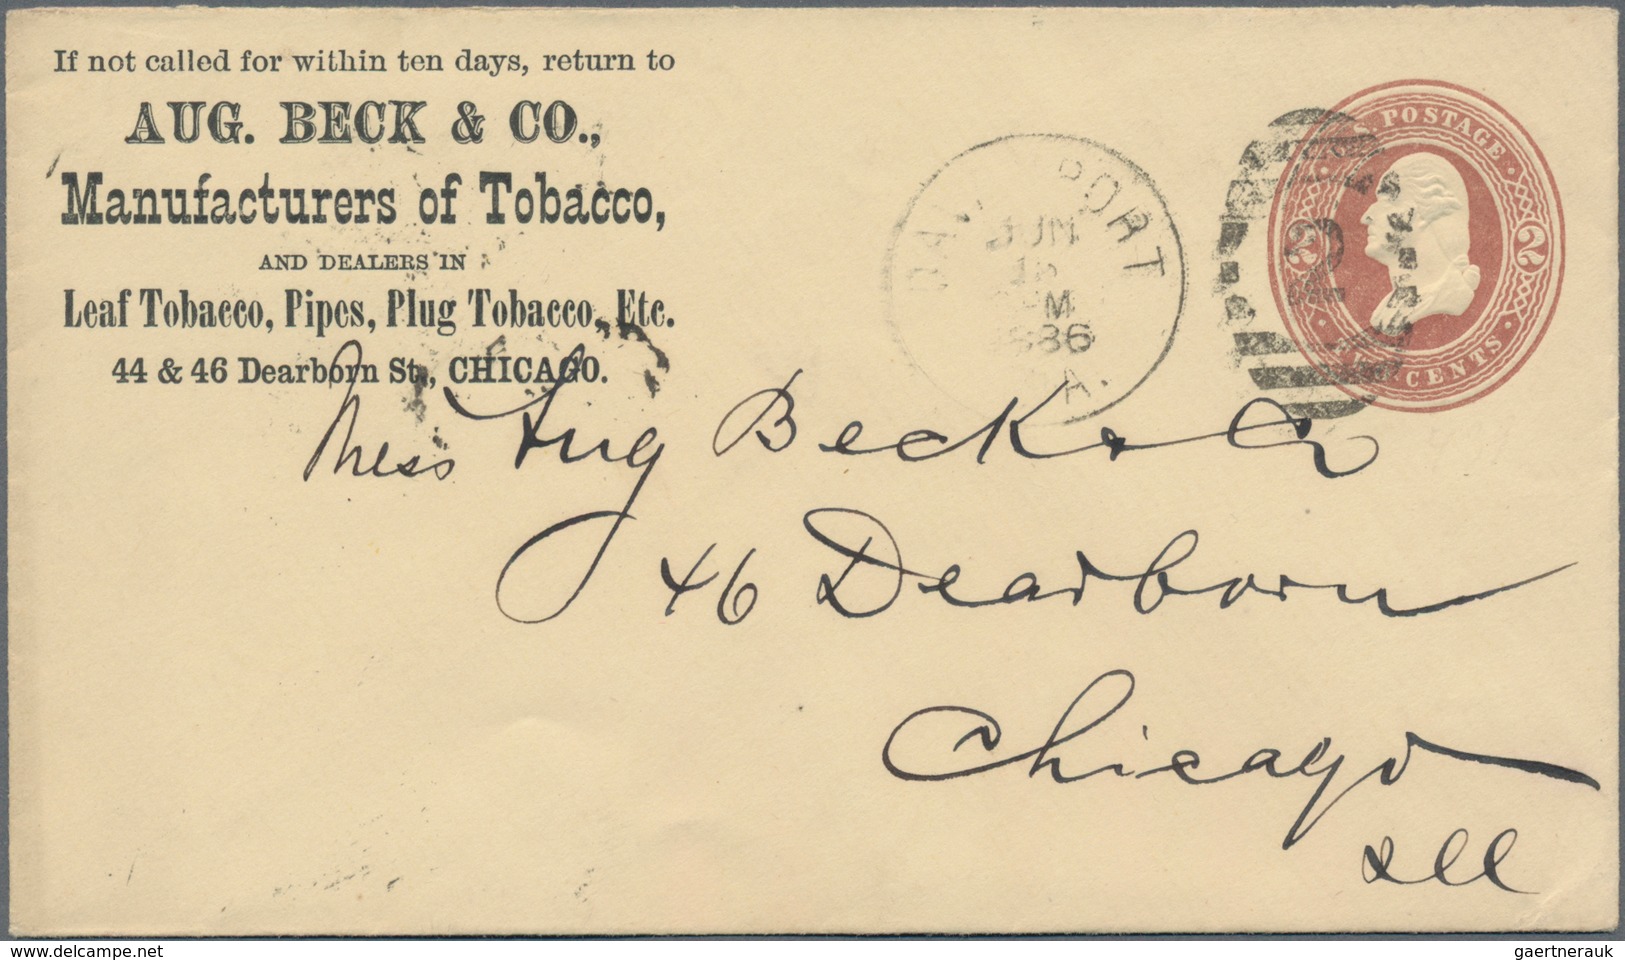 If not called for within ten days, return to
AUG. BECK & CO.,
Manufacturers of Tobacco,
AND DEALERS IN
Leaf Tobacco, Pipes, Plug Tobacco, Etc.
44 & 46 Dearborn St., CHICAGO.
PORT
JUN
M
A.
2
POSTAGE
2 2
CENTS
Mess Aug Beck & Co
46 Dearborn
Chicago
Ill
www.delcampe.net
gaertnerauk